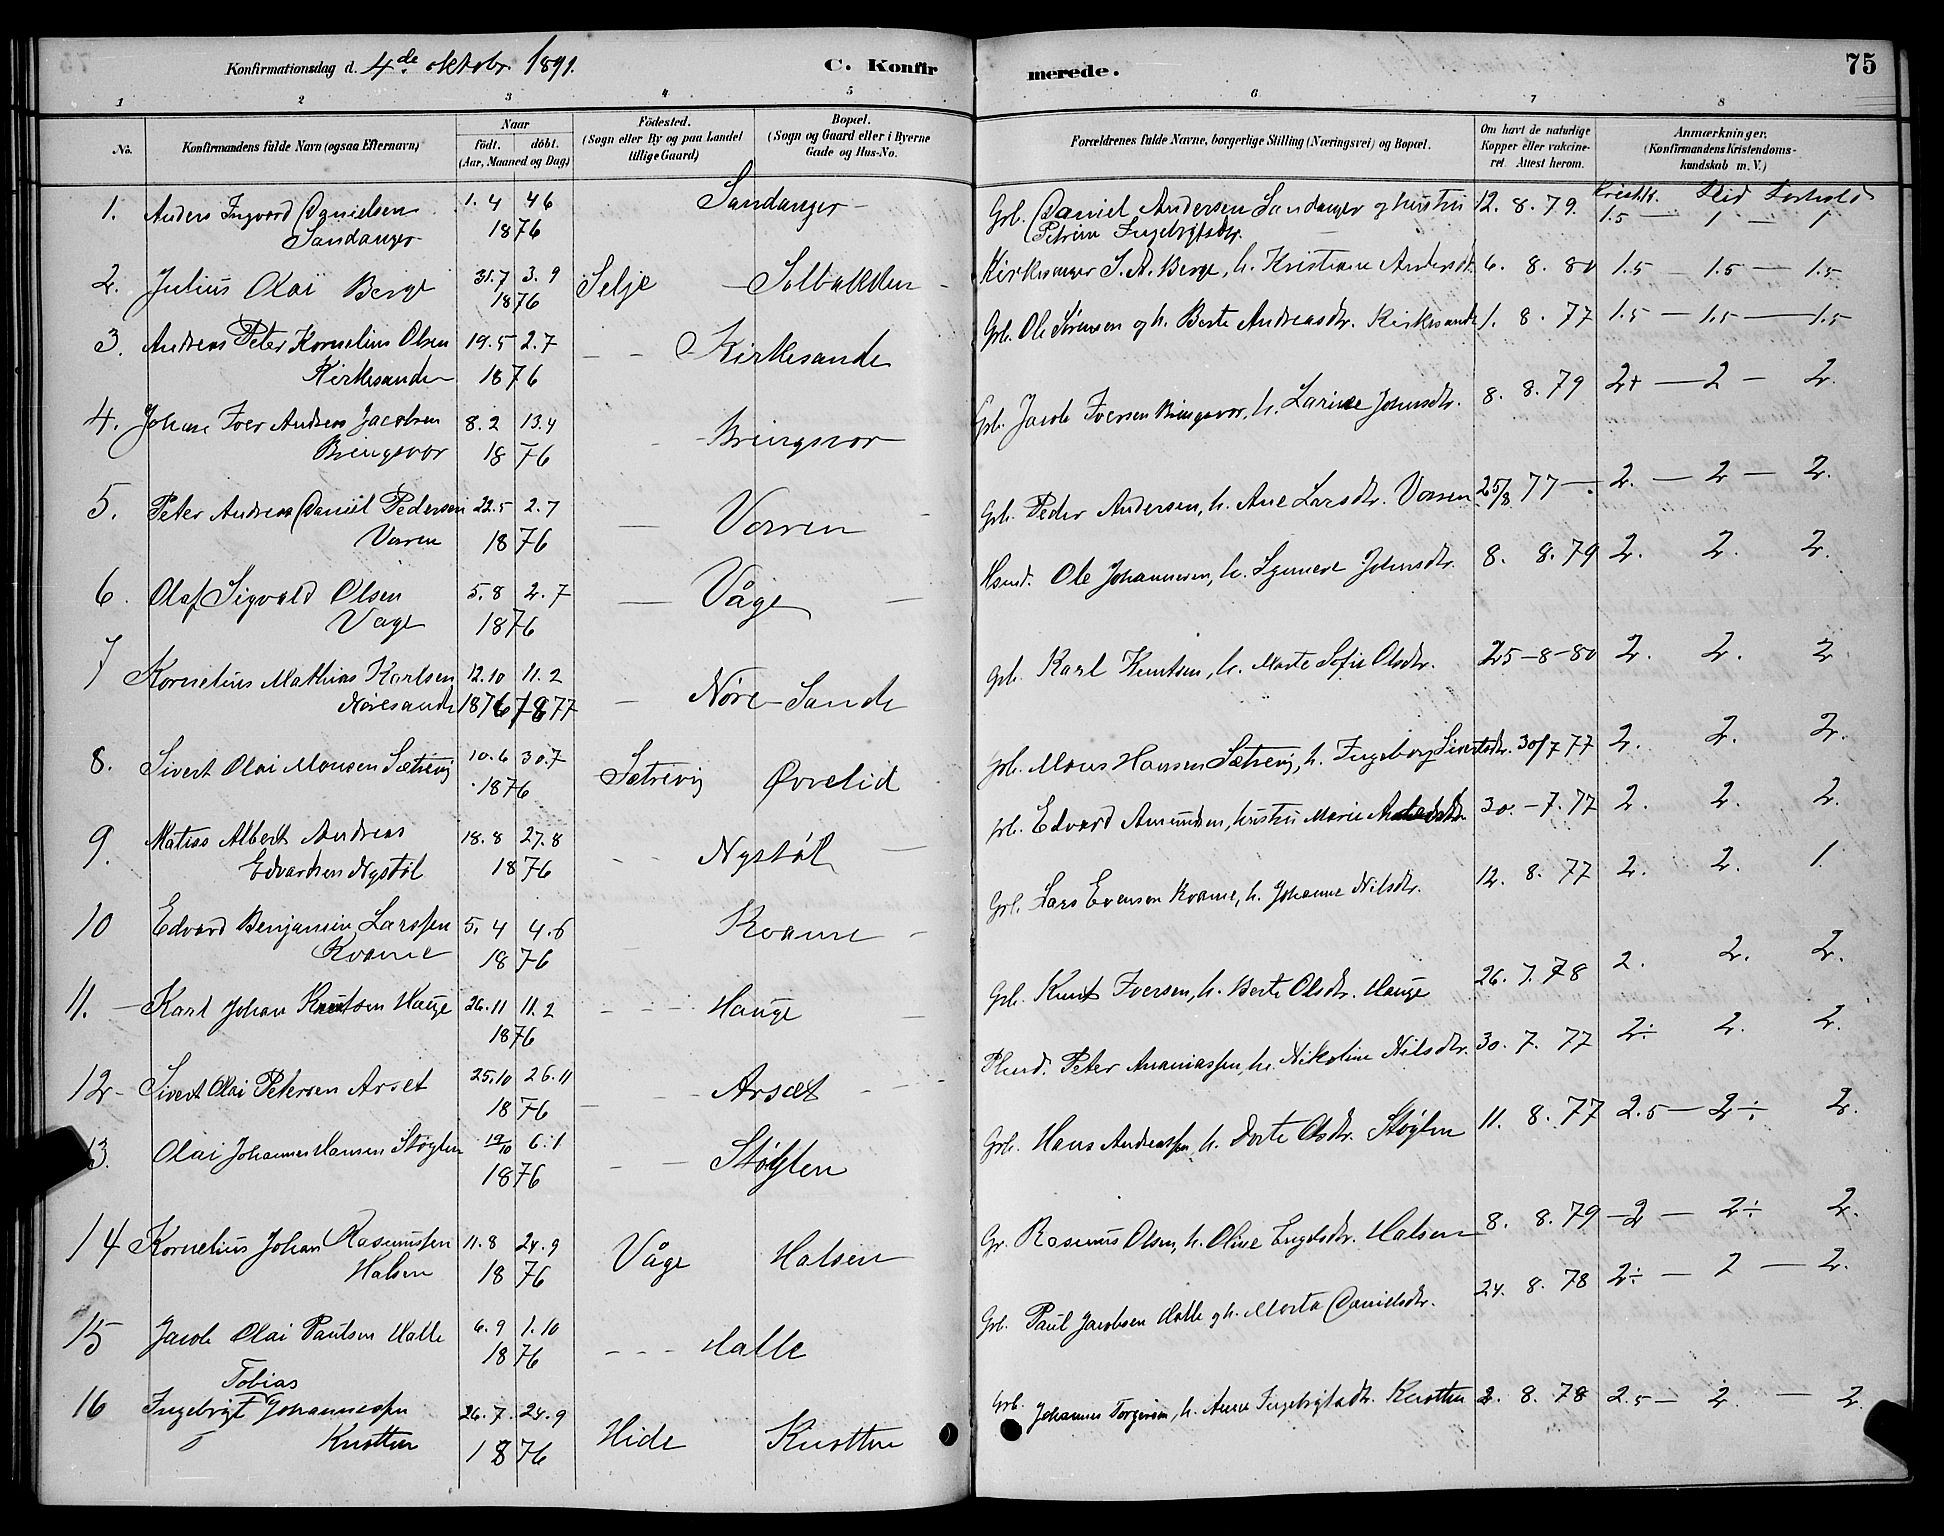 75
Konfirmationsdag d. 4de oktobr. 1891. C. Konfirmerede.
1 2 3 4 5 6 7 8
No. Konfirmandens fulde Navn (ogsaa Efternavn) Naar født. døbt. (Aar, Maaned og Dag) Fødested. (Sogn eller By og paa Landet tillige Gaard) Bopæl. (Sogn og Gaard eller i Byerne Gade og Hus-No. Forældrenes fulde Navne, borgerlige Stilling (Næringsvei) og Bopæl. Om havt de naturlige Kopper eller vaccineret. Attest herom. Anmærkninger. (Konfirmandens Kristendomskundskab m. V.)
Kristdk. Flid Forhold
1. Anders Ingvard Danielsen 1.4 4 6 Sandanger Grb. Daniel Andersen Sandanger og hustru 12. 8. 79. 1.5 — 1 — 1
Sandanger 1876 Petrine Ingebrigtsdtr.
2. Julius Olai Berge 31.7 3.9 Selje Solbakken Kirkesanger S. A. Berge, h. Kristiane Andersdt. 6. 8. 80 1.5 — 1.5 — 1.5
1876
3. Andreas Peter Kornelius Olsen 19.5 2.7 — — Kirkesande Grb. Ole Sørensen og h. Berte Andreasdtr. Kirkesande 1. 8. 77 1.5 — 1.5 — 1.5
Kirkesande 1876
4. Johan Iver Andreas Jacobsen 8.2 13.4 - Bringsvor Grb. Jacob Iversen Bringsvor, h. Larine Johnsdtr. 8. 8. 79 2+ — 2 — 2.
Bringsvor 1876
5. Peter Andreas Daniel Pedersen 22.5 2.7 — Vorren Grb. Peder Andersen, h. Ane Larsdtr. Vorren 25/8 77 —. 2. — 2 — 2.
Vorren 1876
6. Olaf Sigvald Olsen 5.8 2.7 — Våge — Hsmd. Ole Johannesen, h. Johnsdtr. 8. 8. 79 2. 2. 2.
Vage 1876
7 Kornelius Mathias Karlsen 12.10 11.2 — Nøre-Sande Grb. Karl Knutsen, h. Marte Sofie Olsdtr. 25-8-80 2. 2. 2
Nøresande 1876 1877
8. Sivert Olai Monsen Sætrevig 10.6 30.7 Sætrevig Øvrelid Grb. Mons Hansen Sætrevig, h. Ingeborg Sivertsdtr. 30/7 77 2. 2. 2.
1876
9. Matias Albert Andreas 18.8 27.8 - - Nystøl — Grb. Edvard Amundsen, hustru Marie 30. - 7. 77 2. 2. 2.
Edvardsen Nystøl 1876
10 Edvard Benjamin Larssen 5. 4 4.6 Kvame - Grb. Lars Evensen Kvame, h. Johanne Nilsdtr. 12. 8. 77 2. 2. 1.
Kvame 1876
11. — Karl Johan Knutsen Hauge 26.11 11.2 - - - Hauge — Grb. Knut Iversen, h. Berte Olsdtr. Hauge 26. 7. 78 2. 2. 2.
1876
12 - Sivert Olai Petersen Arset 25.10 26.11 — - - Arsæt - - - Peter Ananiassen, h. Nikoline Nilsdtr. 30. 7. 77 2÷ 2. 2.
1876
13. Olai Johannes Hansen Støylen 19/10 6.1 — — Støylen Grb. Hans Andreassen h. Dorte Olsdtr. Støylen 11. 8. 77 2.5 — 2÷ 2.
1876
14 Kornelius Johan Rasmussen 11.8 24.9 Våge Halsen Gr. Rasmus Olsen, h. Oline Engelsdtr. Halsen 8. 8. 79 — 2 — 2÷ 2.
Halsen 1876
15 Jacob Olai Paulsen Halle 6.9 1.10 - - - Halle Grb. Paul Jacobsen Halle og h. Marta Danielsdtr. 24. 8. 78 2÷ — 2 — 2.
1876
Tobias
16 Ingebrigt Johannessen 26.7. 24.9 Hide Knotten Grb. Johannes Torgersen, h. Anne Ingebrigtsdtr. Knotten 2. 8. 78 2.5 — 2 — 2
Knotten 1876